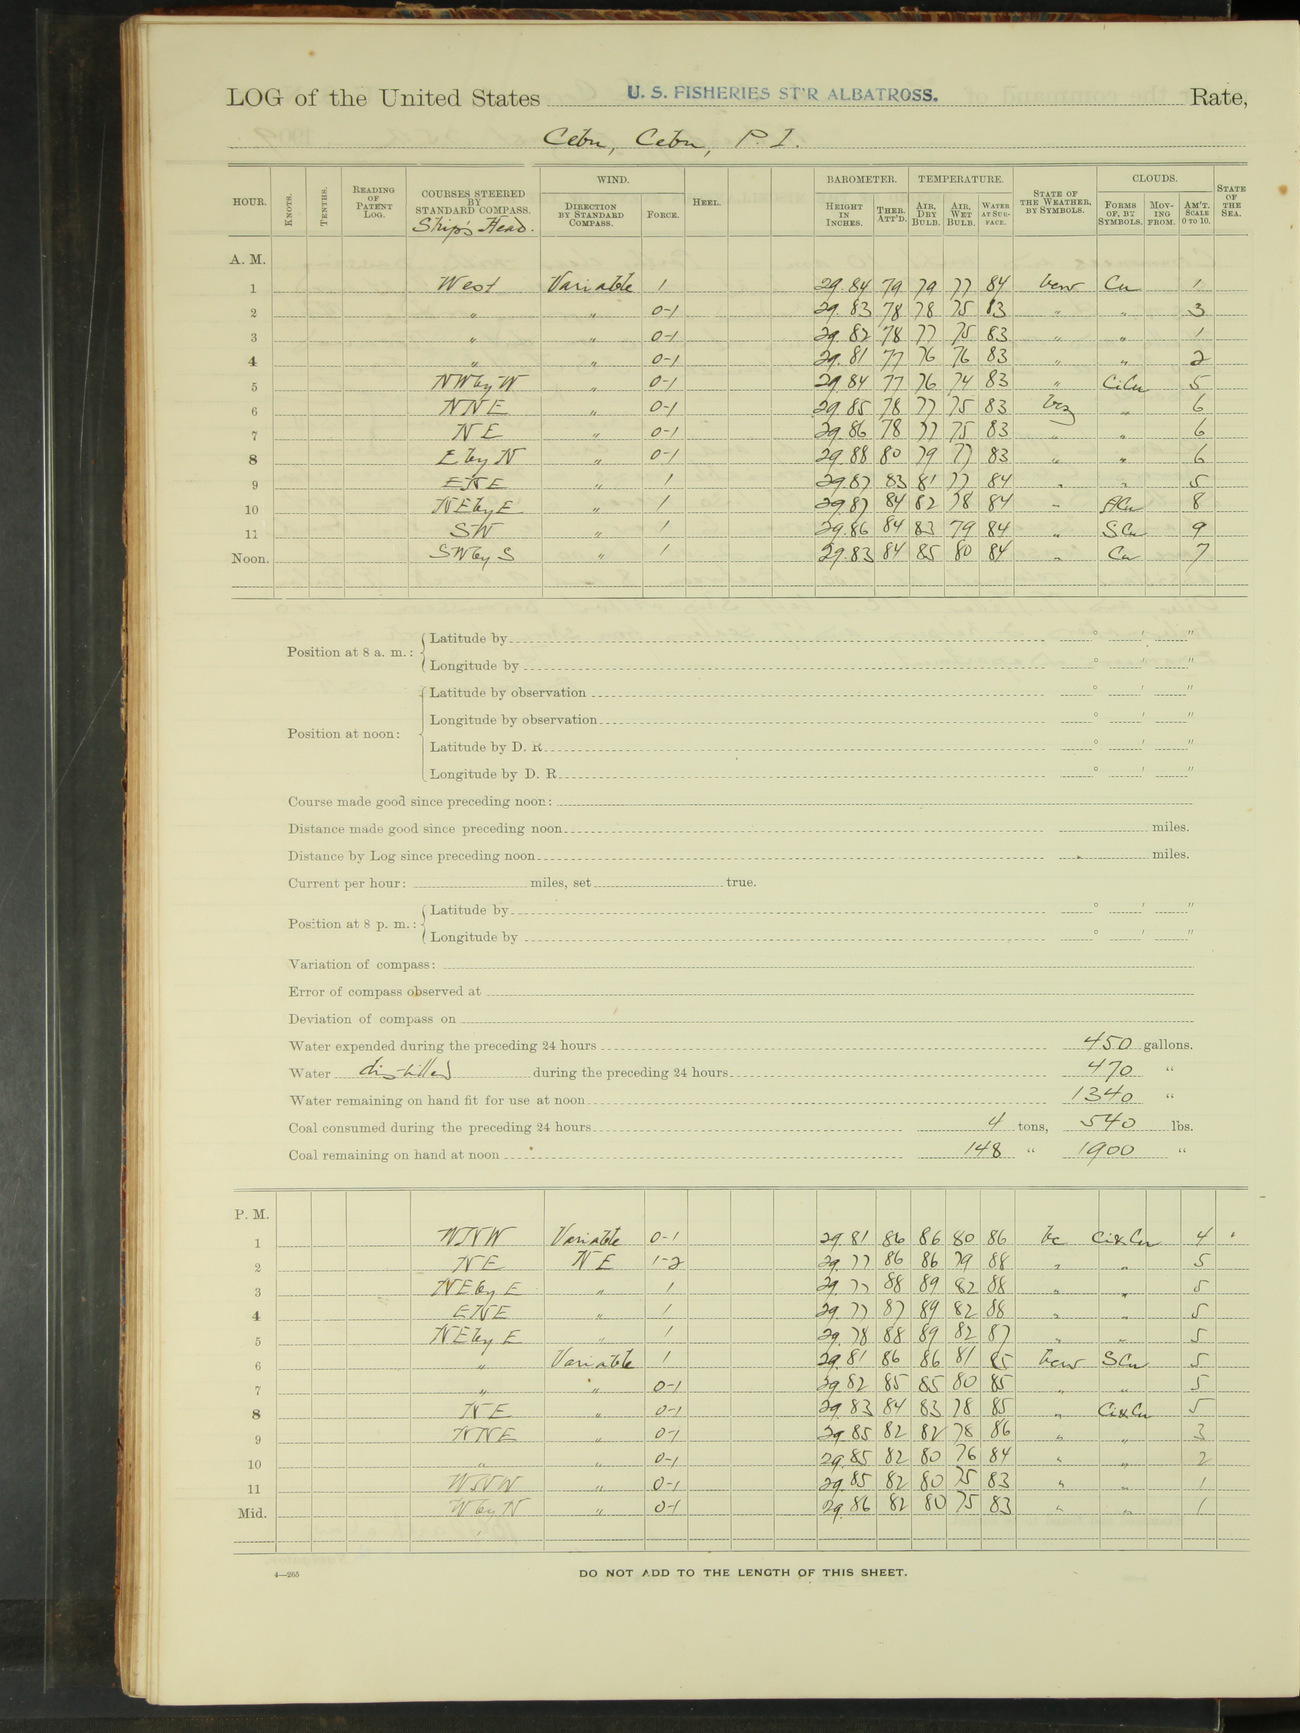 LOG of the United States U. S. FISHERIES ST'R ALBATROSS. Rate,
Cebu, Cebu, P. I.
HOUR. KNOTS. TENTHS. READING OF PATENT LOG. COURSES STEERED BY STANDARD COMPASS. Ship's Head. WIND. DIRECTION BY STANDARD COMPASS. FORCE. HEEL. BAROMETER. HEIGHT IN INCHES. THER. ATT'D. TEMPERATURE. AIR, DRY BULB. AIR, WET BULB. WATER AT SURFACE. STATE OF THE WEATHER, BY SYMBOLS. CLOUDS. FORMS OF, BY SYMBOLS. MOVING FROM. AM'T. SCALE 0 TO 10. STATE OF THE SEA.
A. M.
1 West Variable 1 29.84 79 79 77 84 bcw Cu 1
2 " " 0-1 29.83 78 78 75 83 " " 3
3 " " 0-1 29.82 78 77 75 83 " " 1
4 " " 0-1 29.81 77 76 76 83 " " 2
5 NW by W " 0-1 29.84 77 76 74 83 " CiCu 5
6 NNE " 0-1 29.85 78 77 75 83 bcz " 6
7 NE " 0-1 29.86 78 77 75 83 " " 6
8 E by N " 0-1 29.88 80 79 77 83 " " 6
9 ENE " 1 29.87 83 81 77 84 " " 5
10 NE by E " 1 29.87 84 82 78 84 " ACu 8
11 SW " 1 29.86 84 83 79 84 " SCu 9
Noon. SW by S " 1 29.83 84 85 80 84 " Cu 7
Position at 8 a. m.: Latitude by ° ' "
Longitude by ° ' "
Position at noon: Latitude by observation ° ' "
Longitude by observation ° ' "
Latitude by D. R. ° ' "
Longitude by D. R. ° ' "
Course made good since preceding noon:
Distance made good since preceding noon miles.
Distance by Log since preceding noon miles.
Current per hour: miles, set true.
Position at 8 p. m.: Latitude by ° ' "
Longitude by ° ' "
Variation of compass:
Error of compass observed at
Deviation of compass on
Water expended during the preceding 24 hours 450 gallons.
Water distilled during the preceding 24 hours 470 "
Water remaining on hand fit for use at noon 1340 "
Coal consumed during the preceding 24 hours 4 tons, 540 lbs.
Coal remaining on hand at noon 148 " 1900 "
P. M.
1 WNW Variable 0-1 29.81 86 86 80 86 bc Ci&Cu 4
2 NE NE 1-2 29.77 86 86 79 88 " " 5
3 NE by E " 1 29.77 88 89 82 88 " " 5
4 ENE " 1 29.77 87 89 82 88 " " 5
5 NE by E " 1 29.78 88 89 82 87 " " 5
6 " Variable 1 29.81 86 86 81 85 bcw SCu 5
7 " " 0-1 29.82 85 85 80 85 " " 5
8 NE " 0-1 29.83 84 83 78 85 " Ci&Cu 5
9 NNE " 0-1 29.85 82 82 78 86 " " 3
10 " " 0-1 29.85 82 80 76 84 " " 2
11 WNW " 0-1 29.85 82 80 75 83 " " 1
Mid. W by N " 0-1 29.86 82 80 75 83 " " 1
4—265 DO NOT ADD TO THE LENGTH OF THIS SHEET.